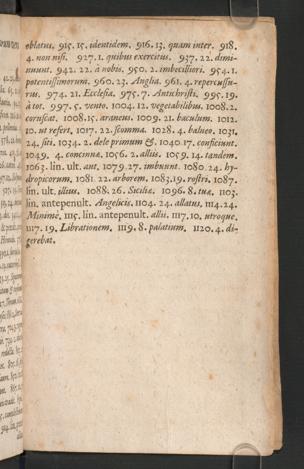 oblatus. 915. 15. identidem. 916. 13. quam inter. 918.
4. non nisi. 927. 1. quibus exercitus. 937. 22. dimi-
nuunt. 942. 22. à nobis. 950. 2. imbecilliori. 954. 1.
potentissimorum. 960. 23. Anglia. 961. 4. repercussu-
rus. 974. 21. Ecclesia. 975. 7. Antichristi. 995. 19.
à tot. 997. 5. vento. 1004. 12. vegetabilibus. 1008. 2.
coruscat. 1008. 15. araneus. 1009. 21. baculum. 1012.
10. ut refert. 1017. 22. scomma. 1028. 4. balneo. 1031.
24. siti. 1034. 2. dele primum &. 1040. 17. conficiunt.
1049. 4. concinnæ. 1056. 2. alliis. 1059. 14. tandem.
1063. lin. ult. aut. 1079. 27. imbuunt. 1080. 24. hy-
dropicorum. 1081. 22. arborem. 1083. 19. rostri. 1087.
lin. ult. illius. 1088. 26. Siciliæ. 1096. 8. tuæ. 1103.
lin. antepenult. Angelicis. 1104. 24. allatus. 1114. 24.
Minimè. 1115. lin. antepenult. allii. 1117. 10. utroque.
1117. 19. Librationem. 1119. 8. palatium. 1120. 4. di-
gerebat.